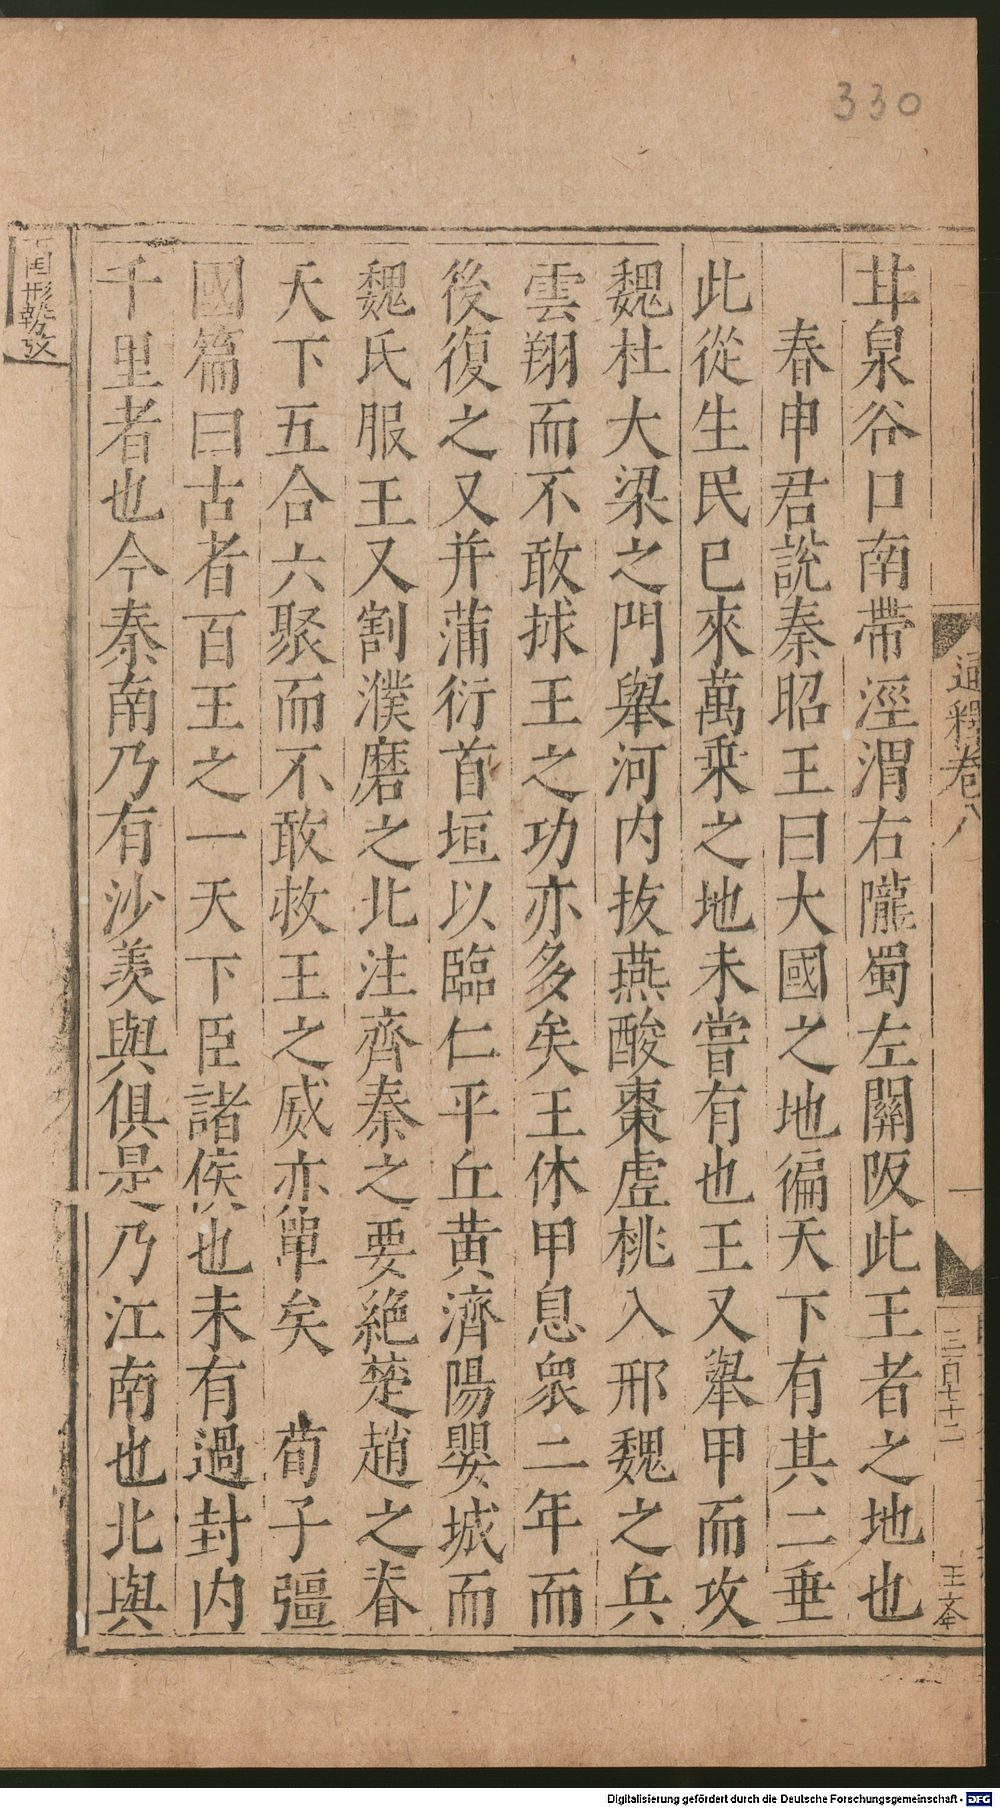 330
通釋卷八
一
三百七十二
甘泉谷口南帶涇渭右隴蜀左關阪此王者之地也
春申君說秦昭王曰大國之地徧天下有其二垂
此從生民已來萬乘之地未嘗有也王又舉甲而攻
魏杜大梁之門舉河內拔燕酸棗虛桃入邢魏之兵
雲翔而不敢捄王之功亦多矣王休甲息衆二年而
後復之又并蒲衍首垣以臨仁平丘黃濟陽嬰城而
魏氏服王又割濮磨之北注齊秦之要絕楚趙之脊
天下五合六聚而不敢救王之威亦單矣 荀子彊
國篇曰古者百王之一天下臣諸侯也未有過封內
千里者也今秦南乃有沙羡與俱是乃江南也北與
Digitalisierung gefördert durch die Deutsche Forschungsgemeinschaft - DFG